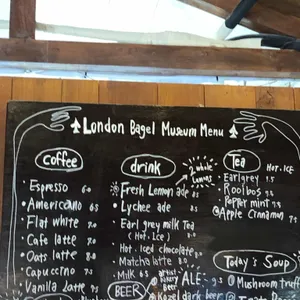 London Bagel Museum Menu
coffee
Espresso 6.0
Americano 6.5
Flat white 7.0
Cafe latte 7.0
Oats latte 8.0
Capuccino 7.5
Vanilla latte 7.5
drink
2 whole Lemons
Fresh Lemon ade
Lychee ade
Earl grey milk Tea
(Hot. Ice)
Hot. Iced chocolate
Matcha latte
Milk 6.5
BEER
ALE:
Kozel dark beer
Tea
HOT. ICE
Earlgrey
Rooibos
Pepper mint
Apple Cinnamon
Today's Soup
Mushroom